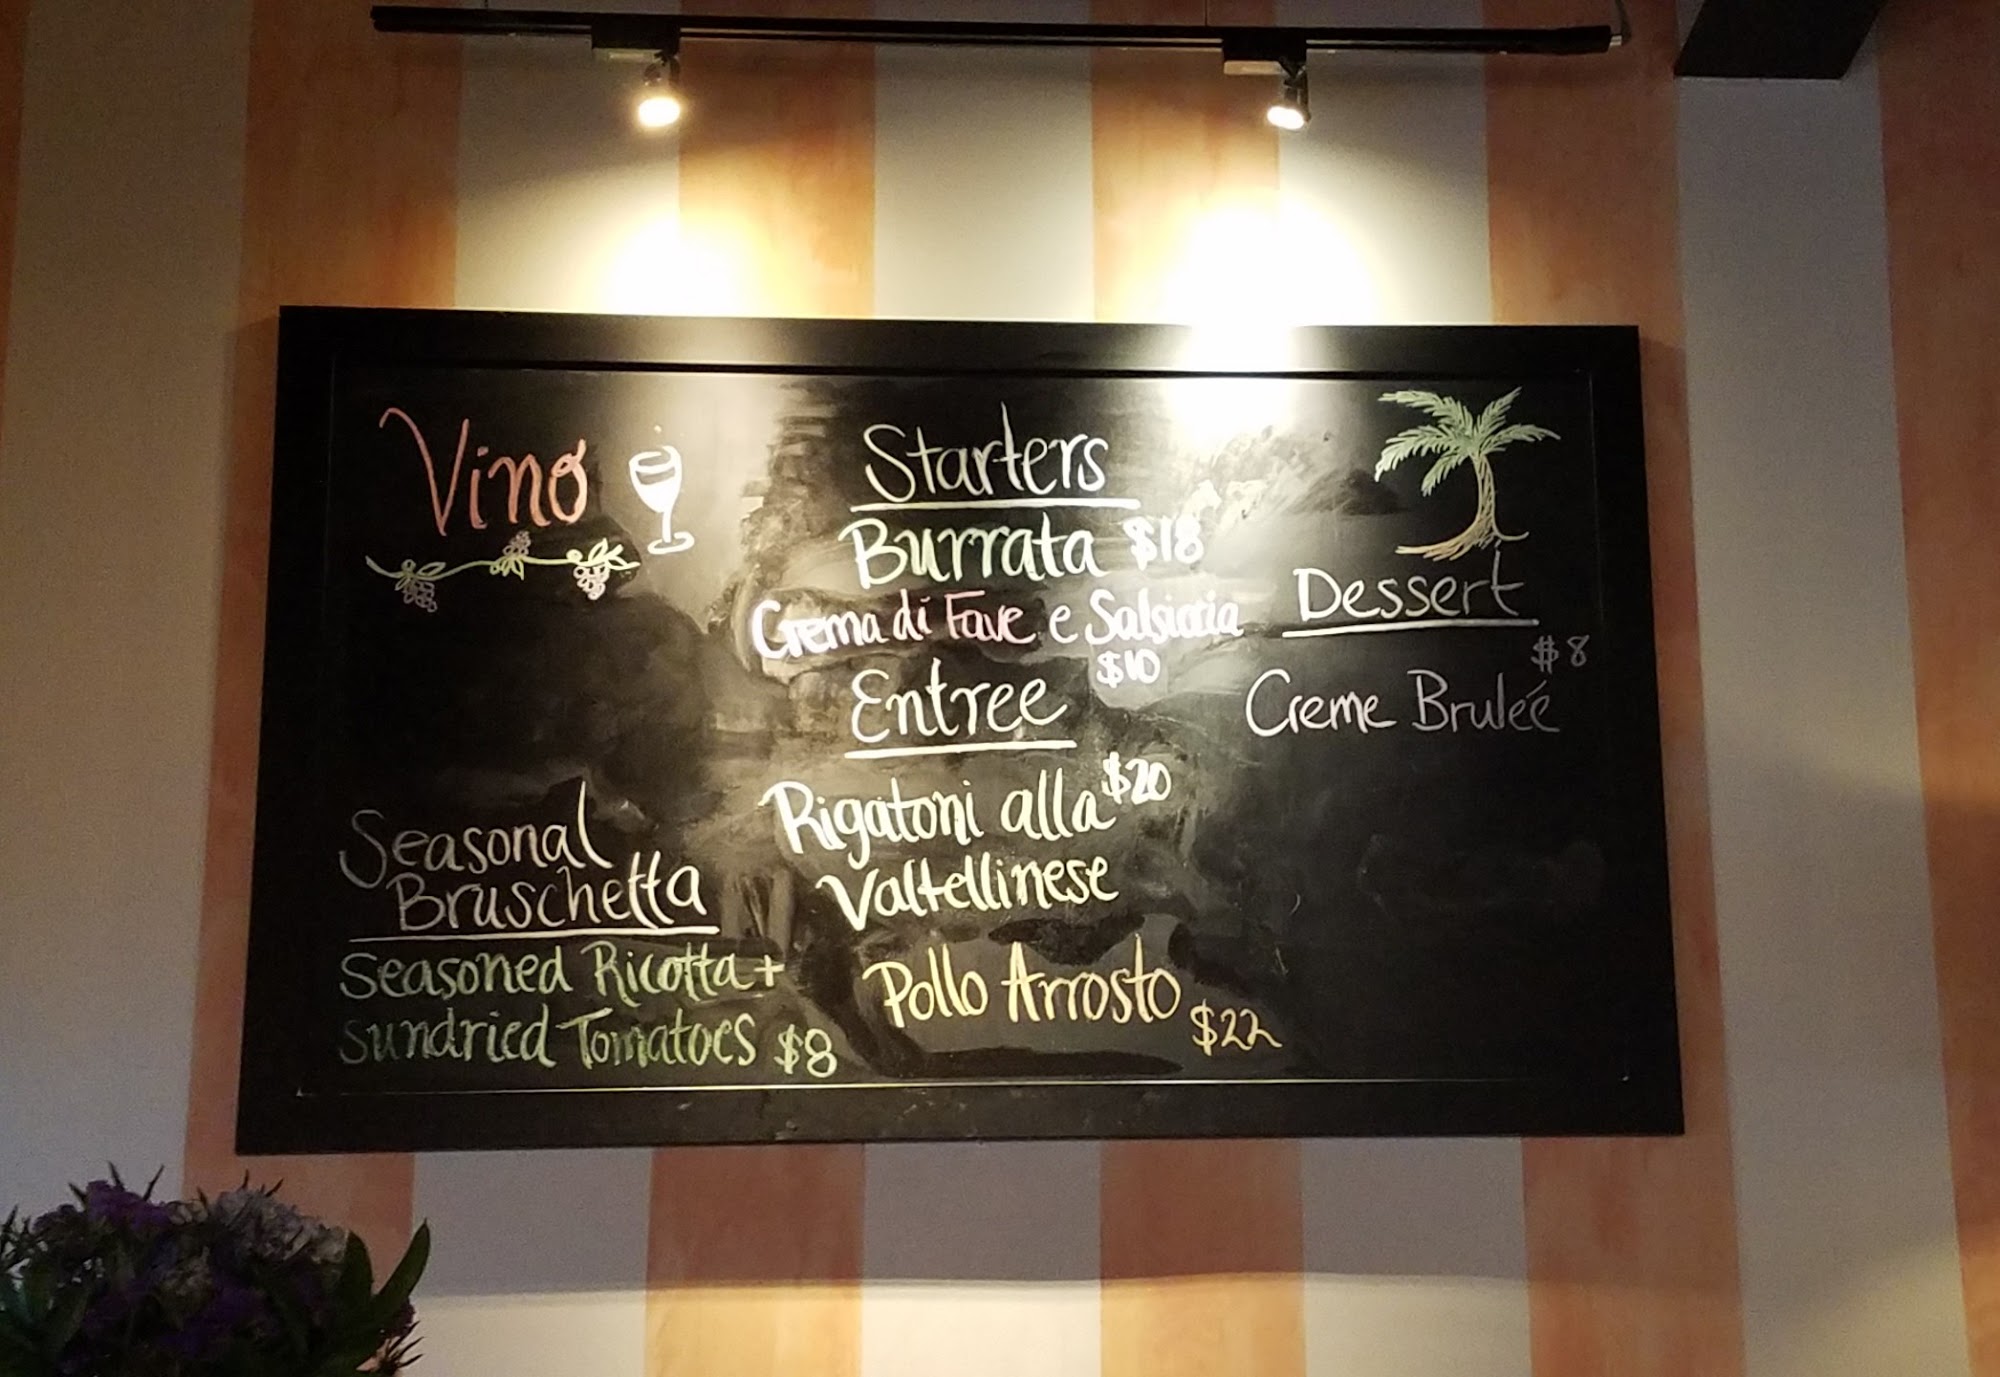 Vino
Seasonal
Bruschetta
Seasoned Ricotta +
sundried Tomatoes $8
Starters
Burrata $18
Crema di Fave e Salsiccia
$10
Entree
Rigatoni alla $20
Valtellinese
Pollo Arrosto
$22
Dessert
$8
Creme Bruleé